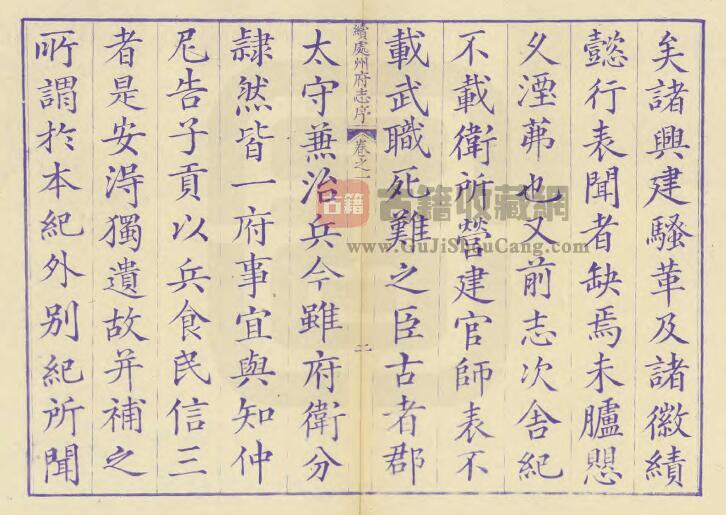 矣諸興建騷革及諸徽績
懿行表聞者缺焉未臚愳
久湮茀也又前志次舍紀
不載衛所營建官師表不
載武職死難之臣古者郡
續處州府志序 卷之一 二
太守兼治兵今雖府衛分
隷然皆一府事宜與知仲
尼告子貢以兵食民信三
者是安淂獨遺故并補之
所謂於本紀外别紀所聞
古籍 古籍收藏網
www.GuJiShouCang.com